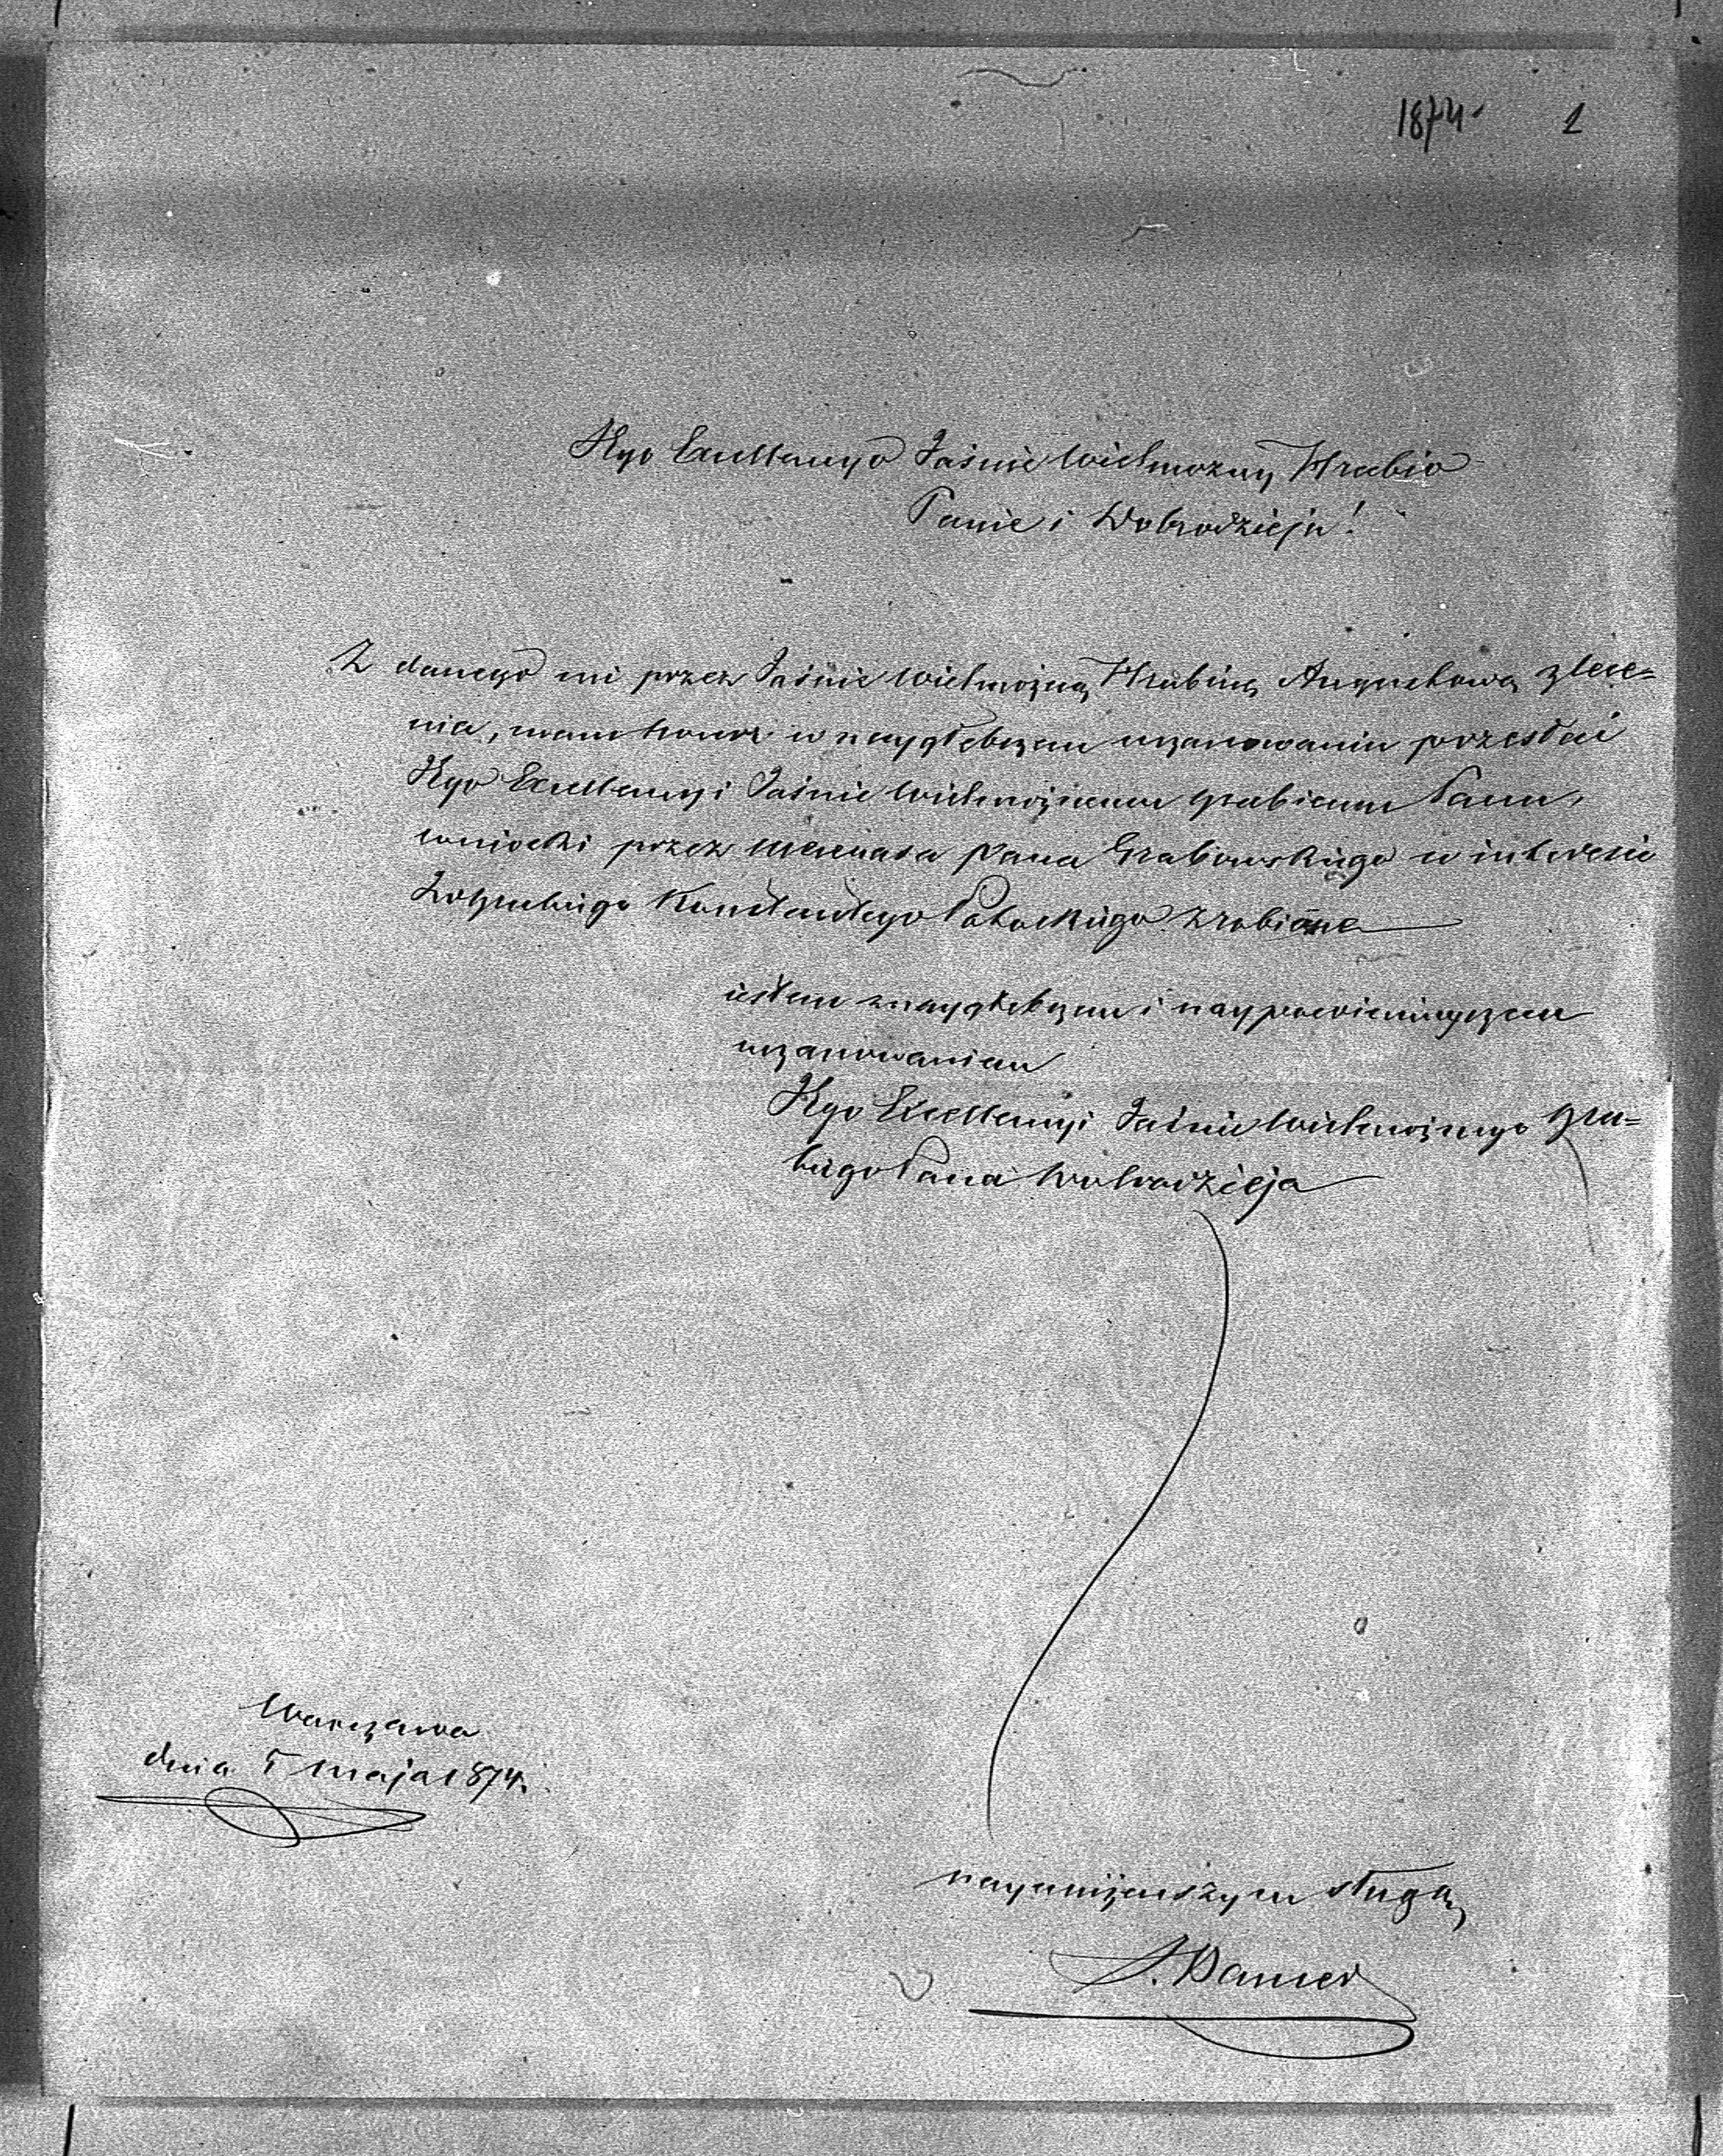 1874. 1
Jego Excellencyo Jaśnie Wielmożny Hrabio
Panie i Dobrodzieju!
Z danego mi przez Jaśnie Wielmożną Hrabinę Augustową zlece=
nia, mam honor w naygłębszem uszanowaniu przesłać
Jego Excellencyi Jaśnie Wielmożnemu Hrabiemu Panu,
wnioski przez Mecenasa Pana Grabowskiego w interesie
Konstantego Potockiego zrobione
iestem z naygłebszem i
uszanowaniem
Jego Excellencyi Jaśnie Wielmożnego Hra=
biego Pana Dobrodzieja
Warszawa
dnia 5 Maja 1874.
nayuniżeńszym sługą